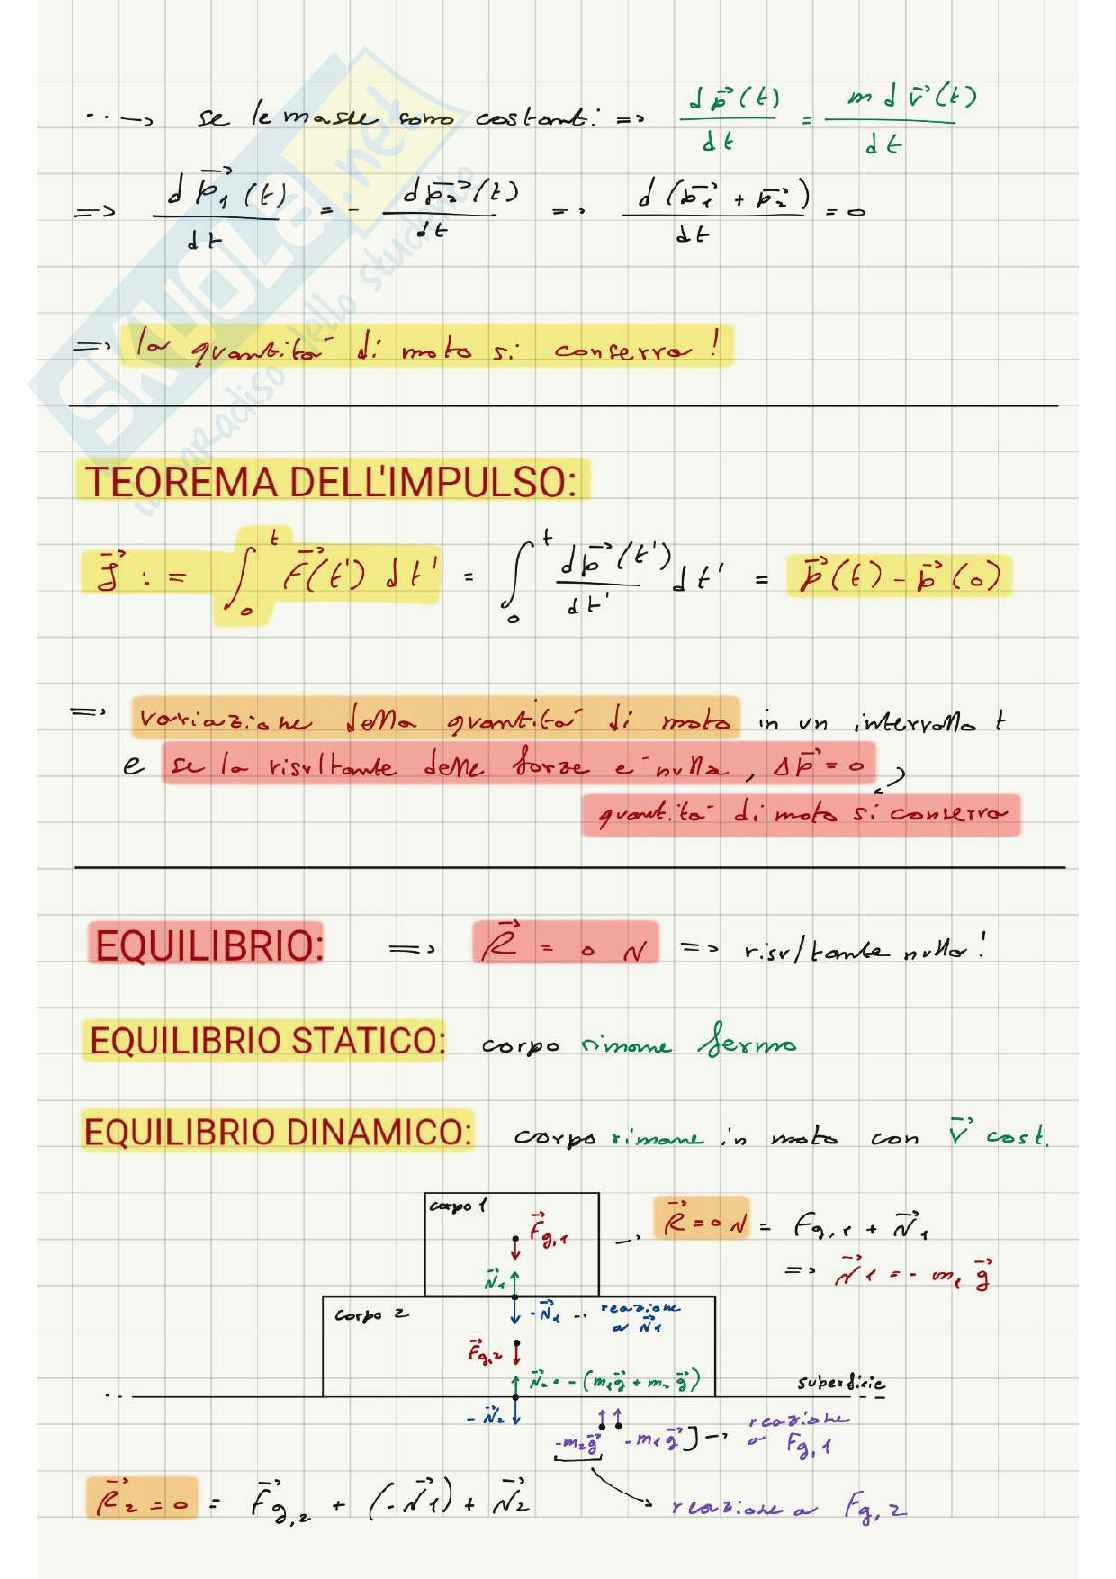 ...→ se le masse sono costanti => dp⃗(t)/dt = m dv⃗(t)/dt
=> dp⃗₁(t)/dt = - dp⃗₂(t)/dt => d(p⃗₁ + p⃗₂)/dt = 0
=> la quantità di moto si conserva!
SKUOLA.net
il paradiso dello studente
TEOREMA DELL'IMPULSO:
J⃗ := ∫₀ᵗ F⃗(t') dt' = ∫₀ᵗ dp⃗(t')/dt' dt' = p⃗(t) - p⃗(0)
=> variazione della quantità di moto in un intervallo t
e se la risultante delle forze è nulla, Δp⃗ = 0
quantità di moto si conserva
EQUILIBRIO: => R⃗ = 0 N => risultante nulla!
EQUILIBRIO STATICO: corpo rimane fermo
EQUILIBRIO DINAMICO: corpo rimane in moto con v⃗ cost.
corpo 1
F⃗g,1 → R⃗ = 0 N = Fg,1 + N⃗₁
N⃗₁ => N⃗₁ = - m₁ g⃗
corpo 2 -N⃗₁ ... reazione a N⃗₁
F⃗g,2
N⃗₂ = -(m₁g⃗ + m₂g⃗) superficie
-N⃗₂ -m₂g⃗ -m₁g⃗] → reazione a Fg,1
R⃗₂ = 0 = F⃗g,2 + (-N⃗₁) + N⃗₂ reazione a Fg,2